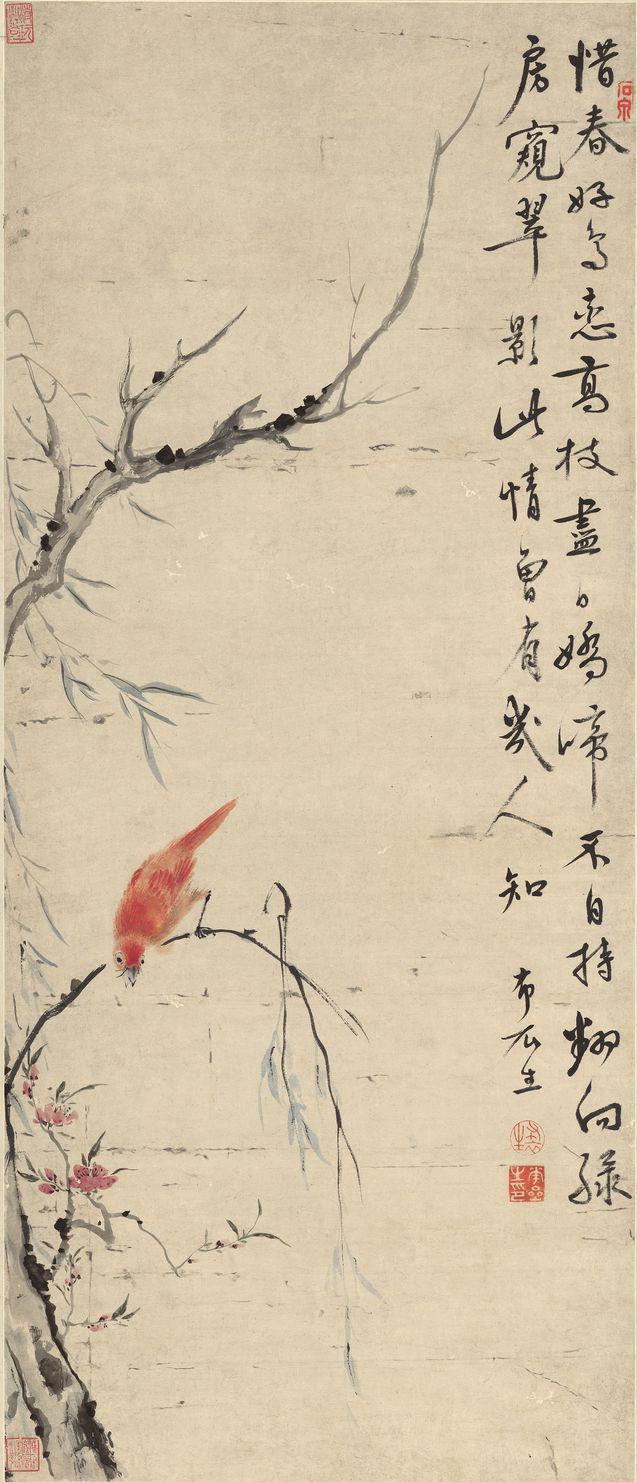 惜春好鳥恋高枝盡日嬌啼不自持翻向綠
房窺翠影此情曾有幾人知 布衣生
石泉